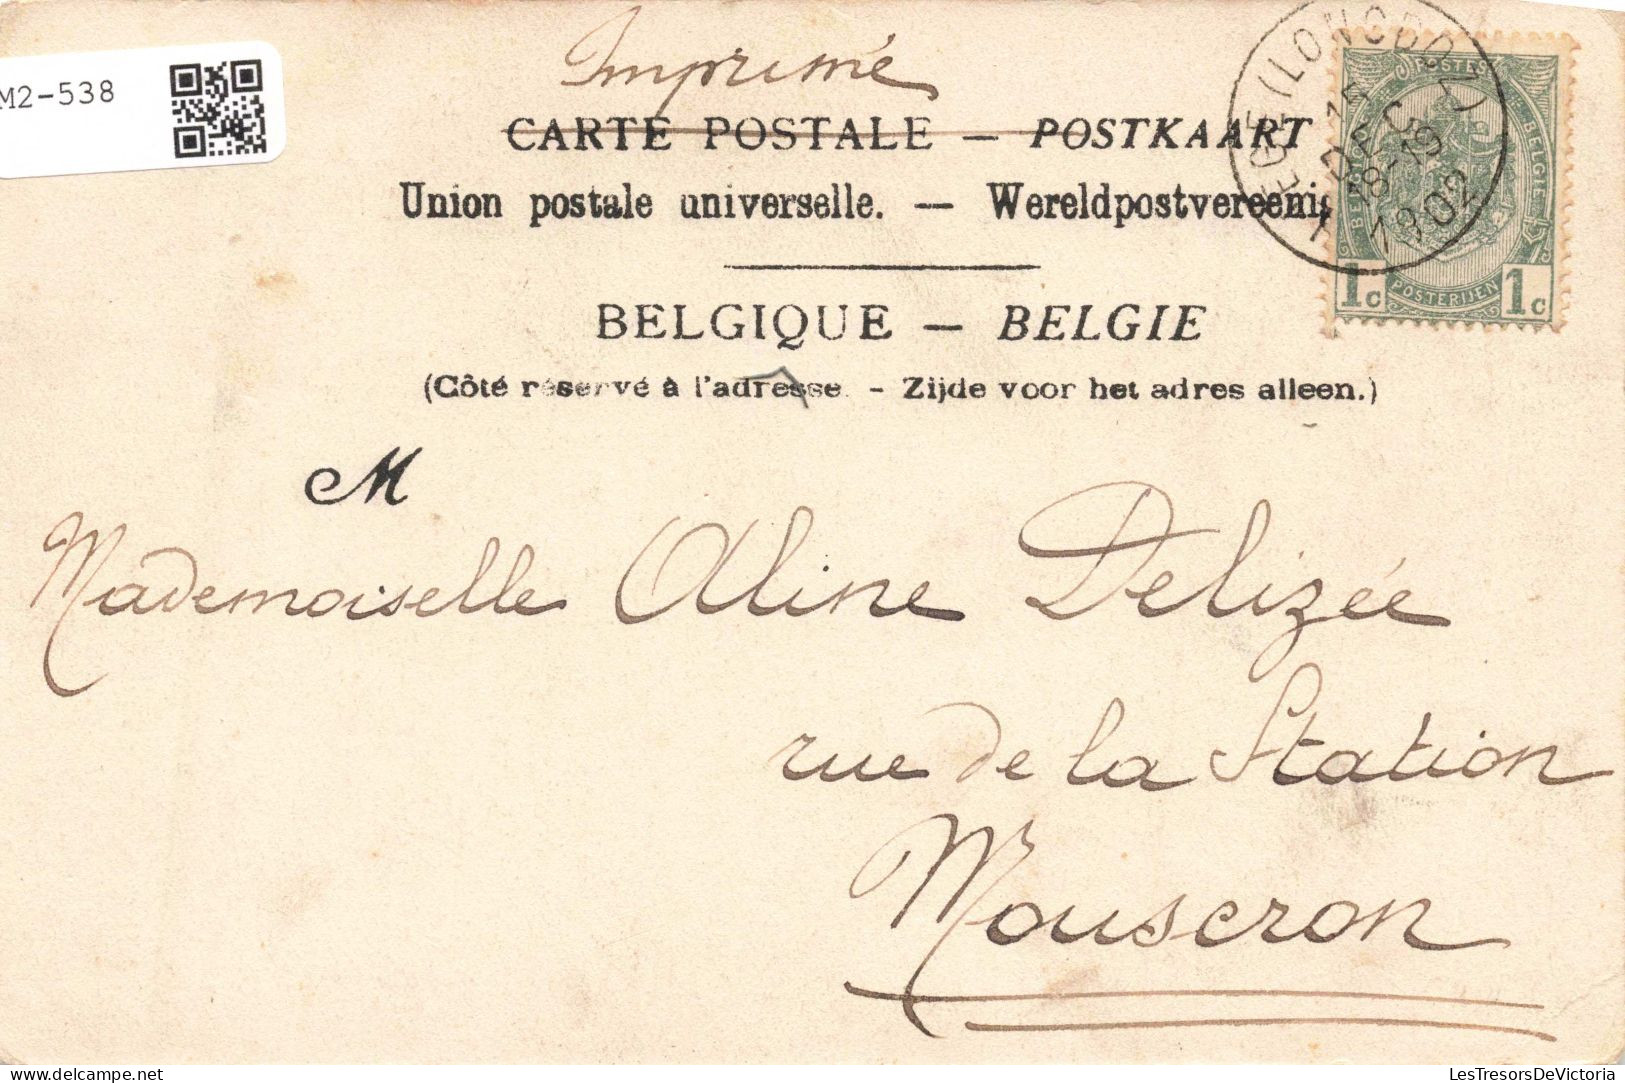 M2-538
Imprimé
CARTE POSTALE — POSTKAART
Union postale universelle. — Wereldpostvereeni
BELGIQUE — BELGIE
(Côté réservé à l'adresse. - Zijde voor het adres alleen.)
LIEGE (LONGDOZ)
15
DEC
18-19
1902
POSTES
BELGIQUE
1c POSTERIJEN 1c
M
Mademoiselle Aline Delizée
rue de la Station
Mouscron
LesTresorsDeVictoria
www.delcampe.net